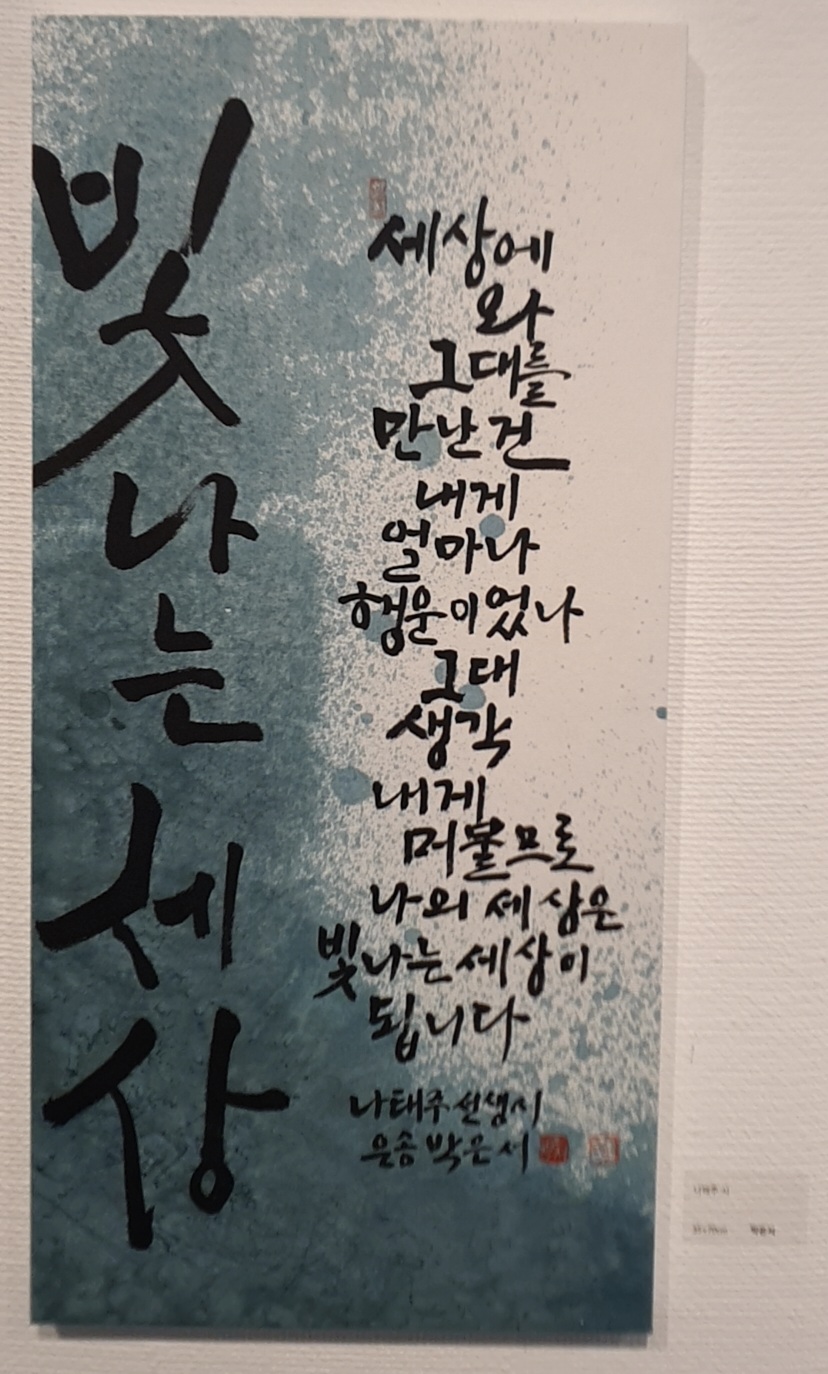 빛나는 세상
세상에
와
그대를
만난건
내게
얼마나
행운이었나
그대
생각
내게
머물므로
나의 세상은
빛나는 세상이
됩니다
나태주 선생 시
은송 박은서
나태주 시
박은서